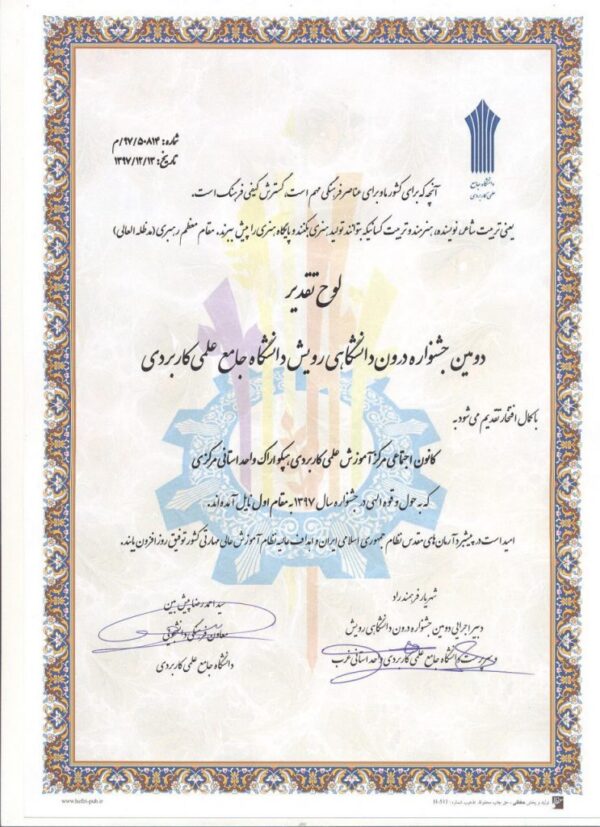 شماره: ۹۷/۵۰۸۱۴/م
تاریخ: ۱۳۹۷/۱۲/۱۳
دانشگاه جامع
علمی کاربردی
آنچه که برای کشور ما و برای عناصر فرهنگی مهم است، گسترش کیفی فرهنگ است.
یعنی تربیت شاعر، نویسنده، هنرمند و تربیت کسانیکه بتوانند تولید هنری بکنند و پایگاه هنری را پیش ببرند. مقام معظم رهبری (مدظله العالی)
لوح تقدیر
دومین جشنواره درون دانشگاهی رویش دانشگاه جامع علمی کاربردی
با کمال افتخار تقدیم می شود به
کانون اجتماعی مرکز آموزش علمی کاربردی هپکو اراک واحد استانی مرکزی
که به حول و قوه الهی در جشنواره سال ۱۳۹۷ به مقام اول نایل آمده اند.
امید است در پیشبرد آرمان های مقدس نظام جمهوری اسلامی ایران و اهداف عالیه نظام آموزش عالی مهارتی کشور توفیق روز افزون یابند.
شهریار فرهمند راد
دبیر اجرایی دومین جشنواره درون دانشگاهی رویش
و سرپرست دانشگاه جامع علمی کاربردی واحد استانی غرب
سید احمدرضا پیش بین
معاون فرهنگی دانشجویی
دانشگاه جامع علمی کاربردی
www.hefzi-pub.ir
تولید و پخش حفظی - حق چاپ محفوظ. تذهیب شماره: H-511